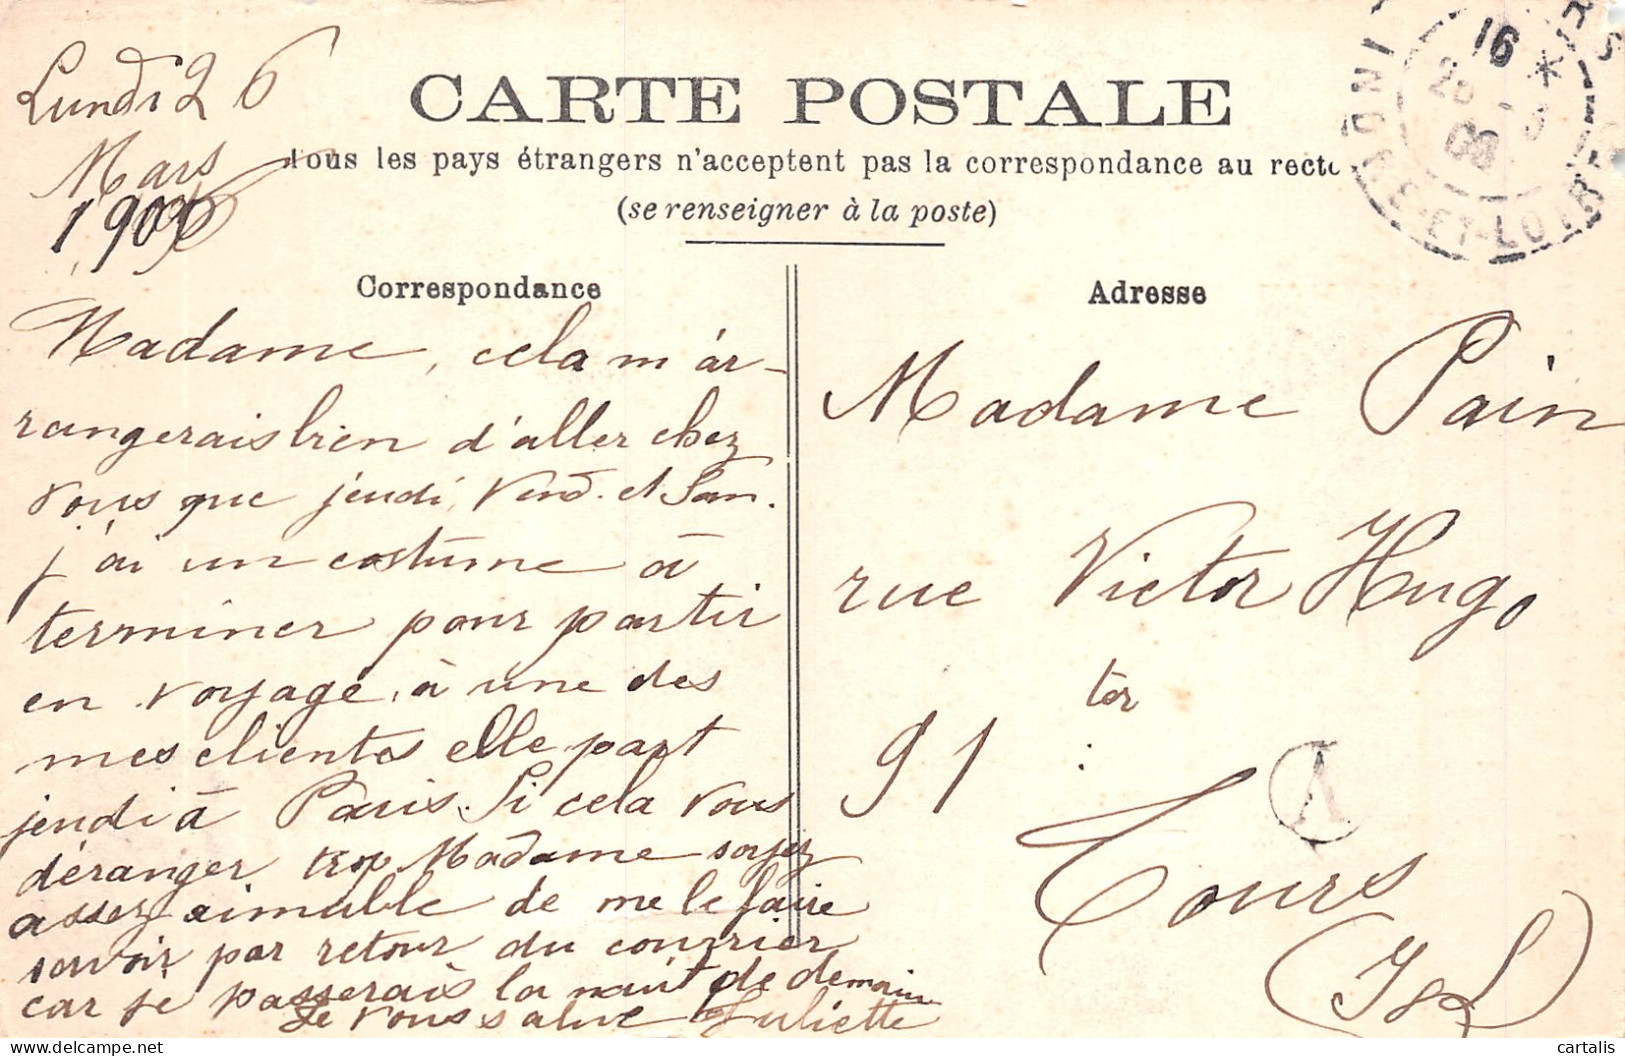 Lundi 26
Mars
1906
CARTE POSTALE
Tous les pays étrangers n'acceptent pas la correspondance au recto
(se renseigner à la poste)
16 *
INDRE-ET-LOIRE
Correspondance
Madame, cela m'ar-
rangerais bien d'aller chez
vous que jeudi, Vend. et Sam.
j'ai un costume à
terminer pour partir
en voyage, à une des
mes clientes elle part
jeudi à Paris. Si cela vous
déranger trop Madame soyez
assez aimable de me le faire
savoir par retour du courrier
car je passerais la nuit de demain
Je vous salue Juliette
Adresse
Madame Pain
rue Victor Hugo
ter
91
A
Tours
(I & L)
cartalis
delcampe.net